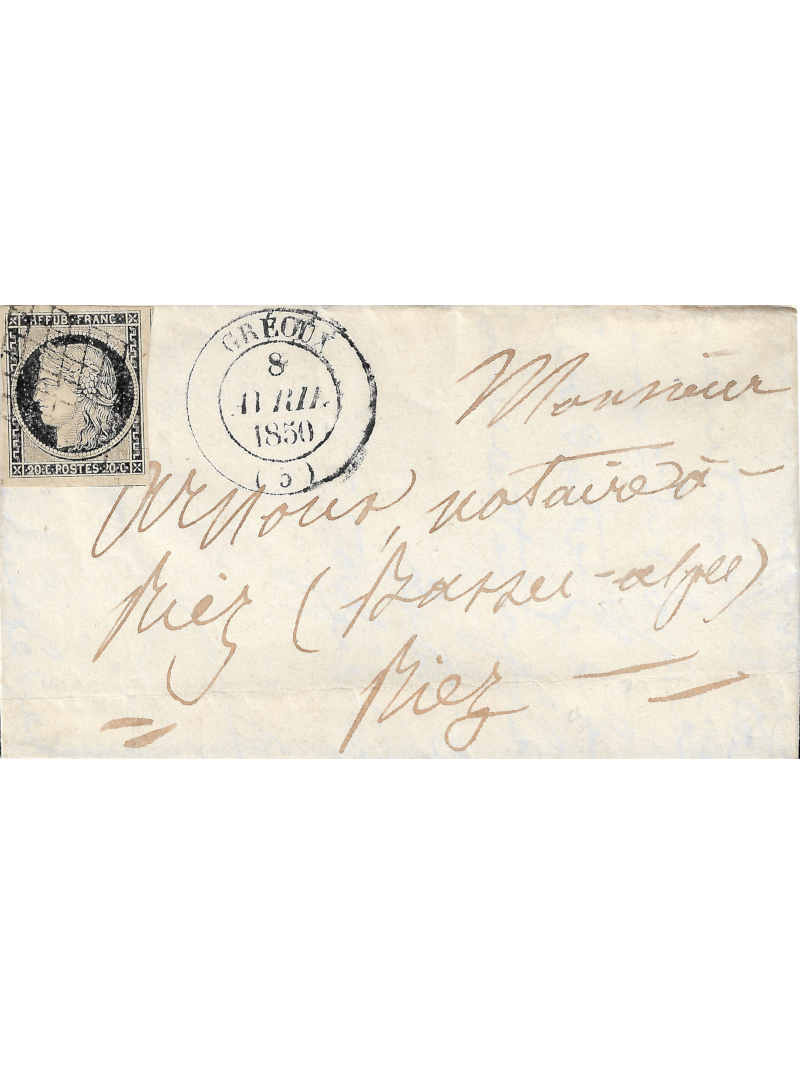 REPUB·FRANC·
20·C·POSTES·20·C·
GRÉOUX
8
AVRIL
1850
(5)
Monsieur
Arnoux, notaire à
Riez (Basses-alpes)
Riez